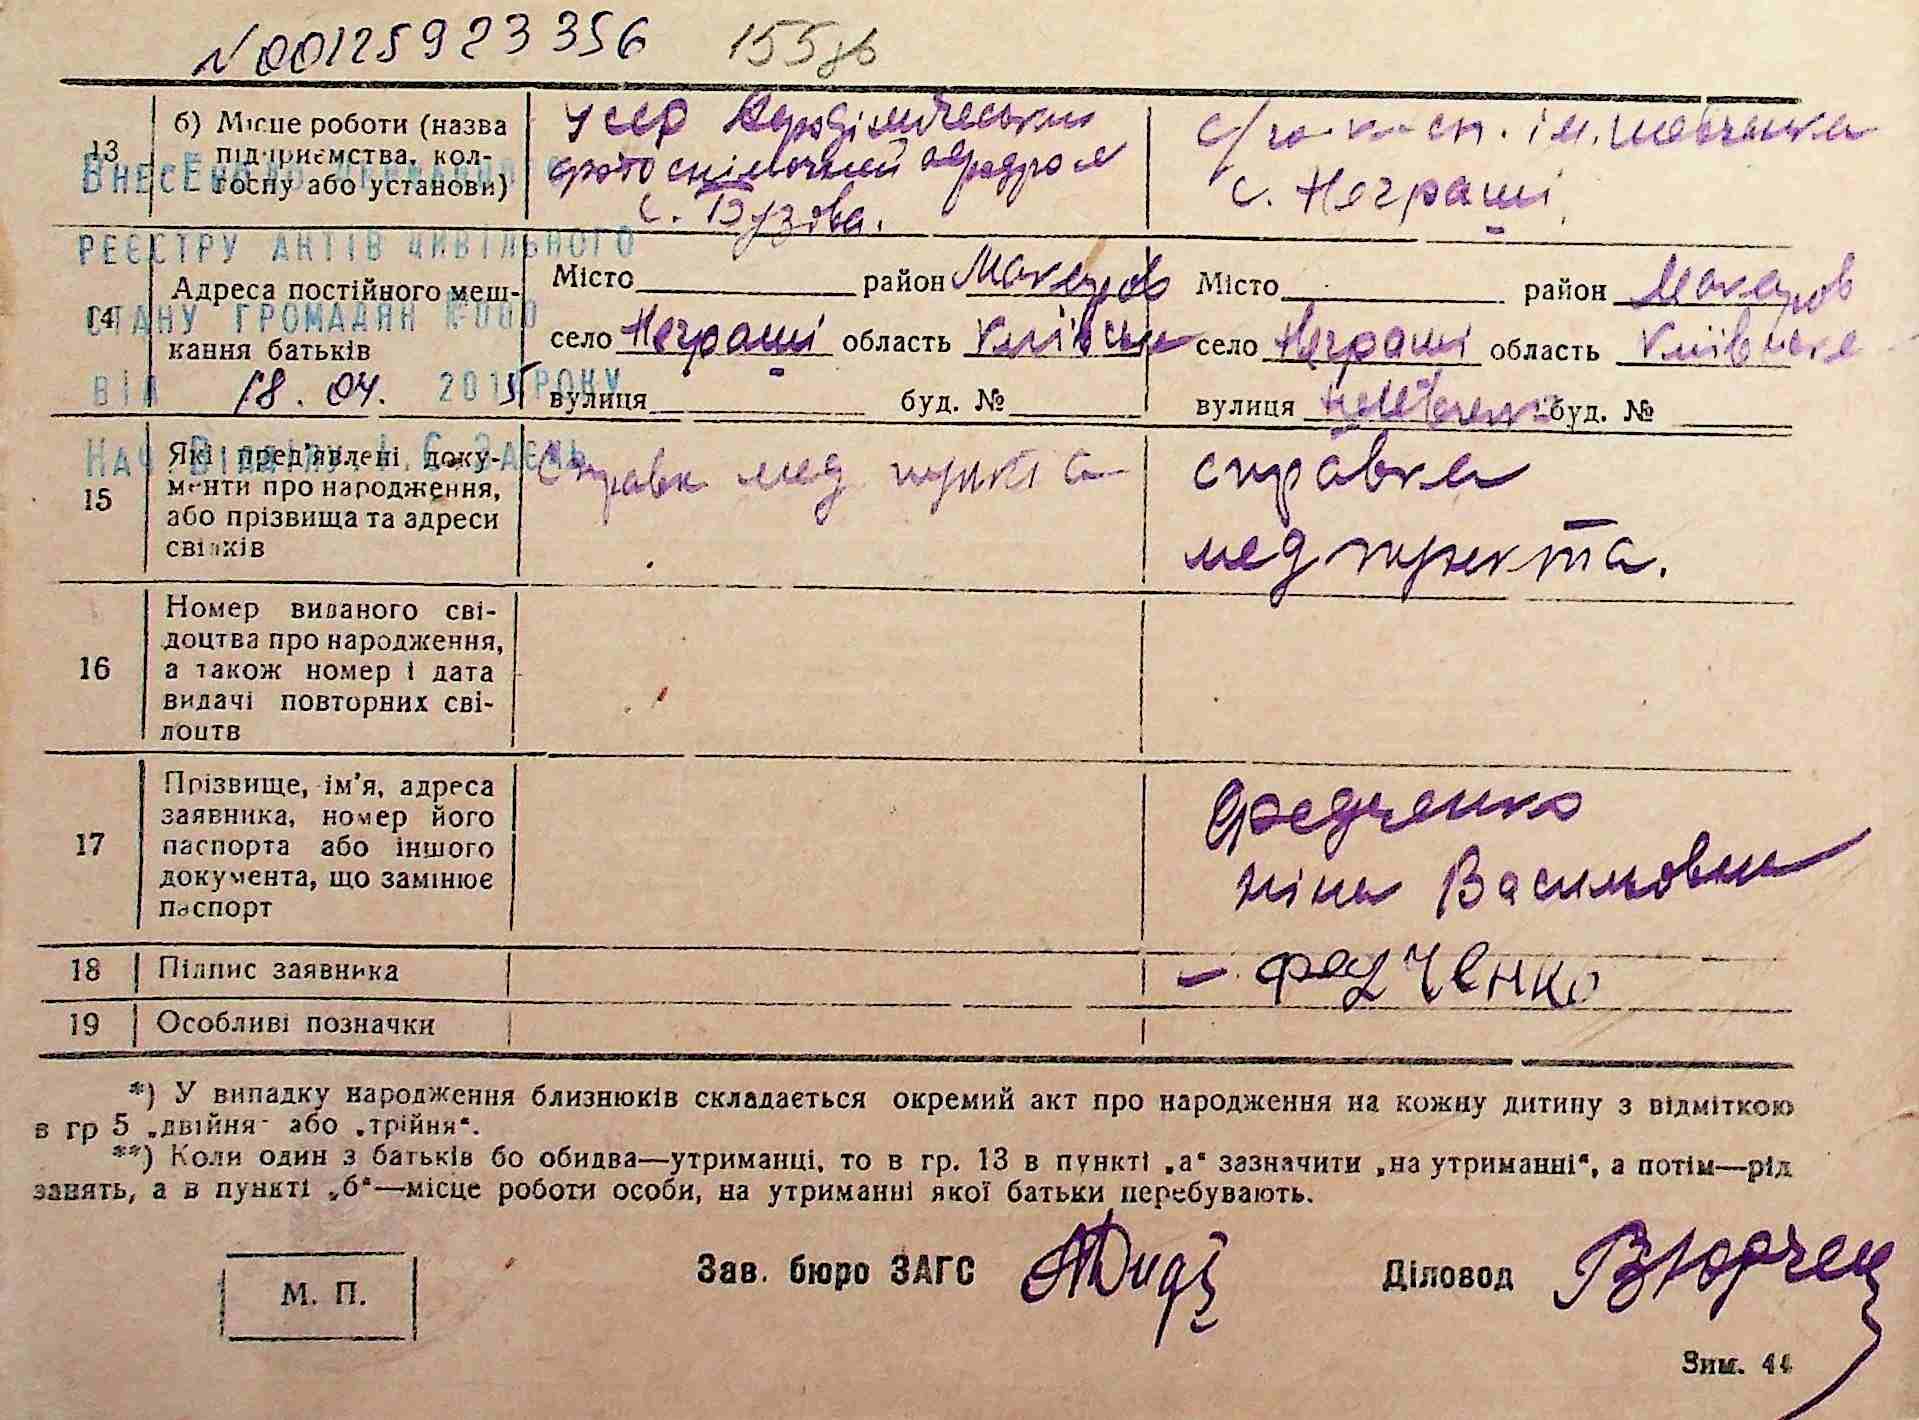 N00125923356 155зв
13
б) Місце роботи (назва підприємства, колгоспу або установи)
усер
фотоснімочний аеродром
с. Бузова.
с. Неграші
ВНЕСЕНО ДО ДЕРЖАВНОГО
РЕЄСТРУ АКТІВ ЦИВІЛЬНОГО
СТАНУ ГРОМАДЯН
ВІД 18.04. 2015 РОКУ
НАЧ ВІДДІЛУ І. Є. ЗАЄЦЬ
14
Адреса постійного мешкання батьків
Місто район Макаров
село Неграші область Київськ
вулиця буд. №
Місто район Макаров
село Неграші область Київська
вулиця буд. №
15
Які пред'явлені документи про народження, або прізвища та адреси свідків
Справка мед пункта
справка
мед пункта.
16
Номер виданого свідоцтва про народження, а також номер і дата видачі повторних свідоцтв
17
Прізвище, ім'я, адреса заявника, номер його паспорта або іншого документа, що замінює паспорт
Федченко
Ніна Василовна
18 Підпис заявника
- Федченко
19 Особливі позначки
*) У випадку народження близнюків складається окремий акт про народження на кожну дитину з відміткою
в гр 5 „двійня" або „трійня".
**) Коли один з батьків бо обидва—утриманці, то в гр. 13 в пункті „а" зазначити „на утриманні", а потім—рід
занять, а в пункті „б"—місце роботи особи, на утриманні якої батьки перебувають.
М. П.
Зав. бюро ЗАГС
Діловод
Зим. 44